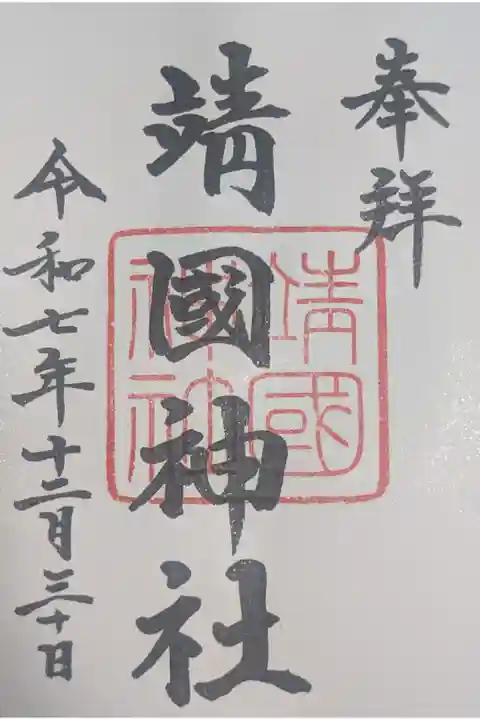 奉拝
靖國神社
靖國
神社
令和七年十二月三十日